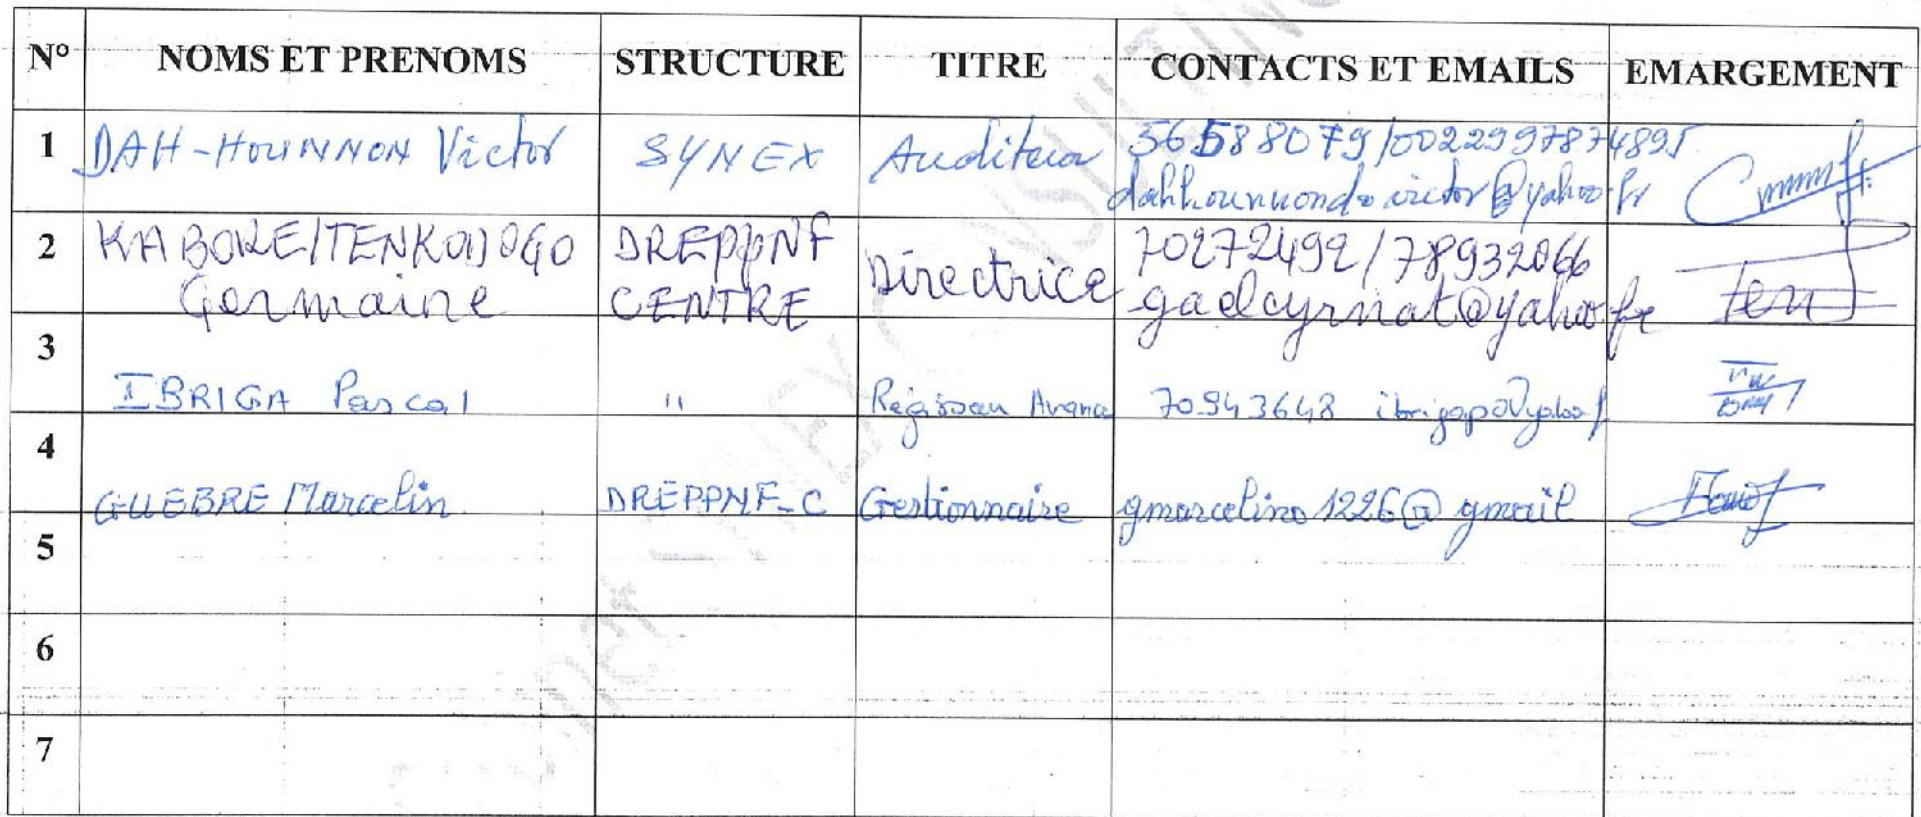 N° NOMS ET PRENOMS STRUCTURE TITRE CONTACTS ET EMAILS EMARGEMENT
1 DAH-HOUNNON Victor SYNEX Auditeur 56588079/0022997874895
dahhounnondo victor@yahoo.fr
2 KABORE/TENKODOGO DREPPNF Directrice 70272492/78932066
Germaine CENTRE gaelcyrnat@yahoo.fr
3
IBRIGA Pascal " Régisseur Avance 70943648
4
GUEBRE Marcelin DREPPNF-C Gestionnaire gmarcelino1226@gmail
5
6
7